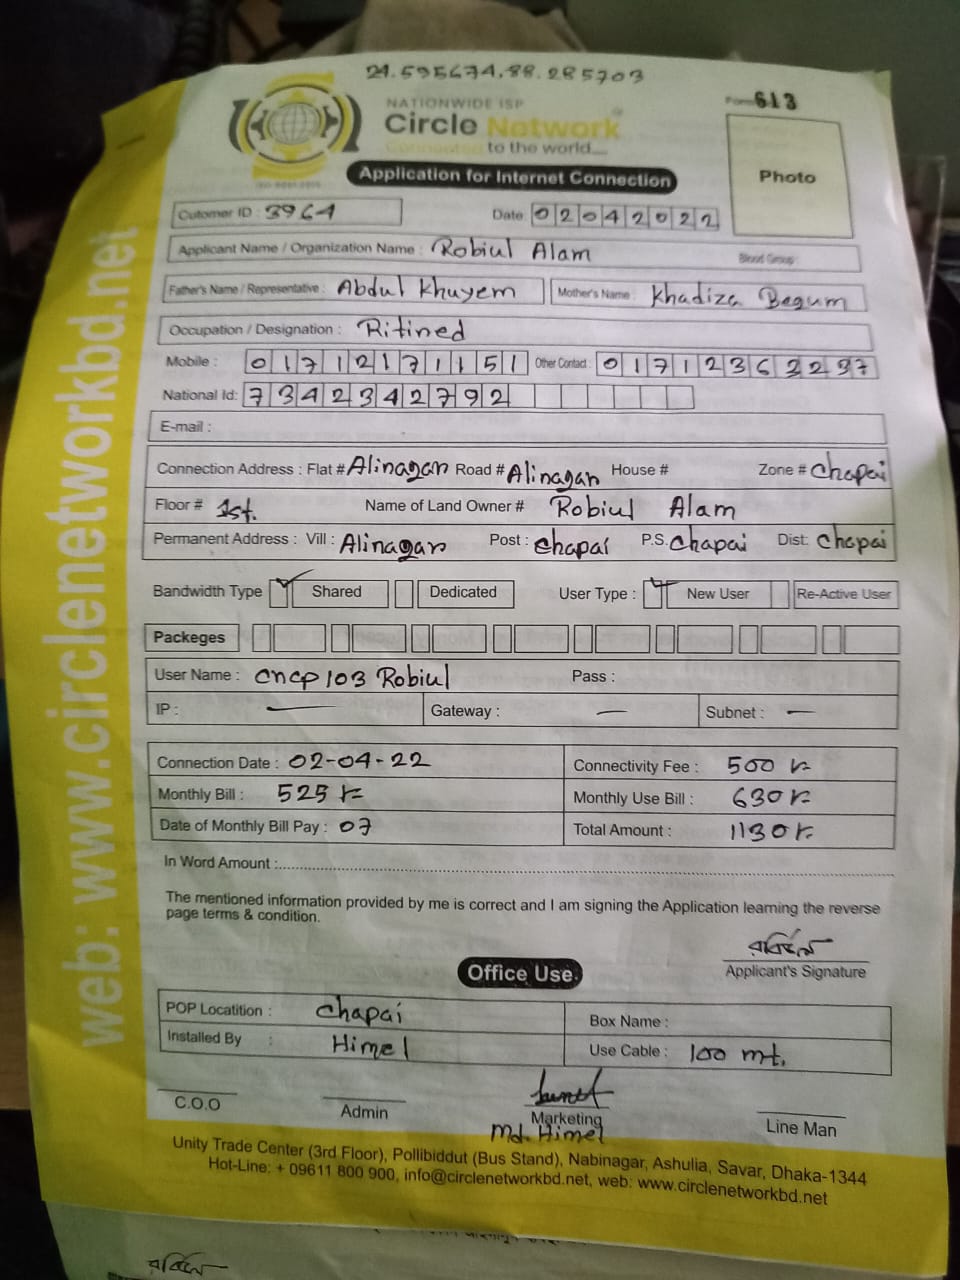 24.595674,88.285703
NATIONWIDE ISP
Form 613
Circle Network
Connected to the world....
Application for Internet Connection
Photo
Cutomer ID : 3964
Date 02042022
Applicant Name / Organization Name : Robiul Alam Blood Group
Father's Name / Representative : Abdul Khuyem Mother's Name Khadiza Begum
Occupation / Designation : Ritined
Mobile : 01712171151 Other Contact : 01712362297
National Id: 7342342792
E-mail :
Connection Address : Flat # Alinagan Road # Alinagan House # Zone # Chapai
Floor # 1st. Name of Land Owner # Robiul Alam
Permanent Address : Vill : Alinagan Post : Chapai P.S. Chapai Dist: Chapai
Bandwidth Type Shared Dedicated User Type : New User Re-Active User
Packeges
User Name : cncp103 Robiul Pass :
IP : — Gateway : — Subnet : —
Connection Date : 02-04-22 Connectivity Fee : 500
Monthly Bill : 525 Monthly Use Bill : 630
Date of Monthly Bill Pay : 07 Total Amount : 1130
In Word Amount :
The mentioned information provided by me is correct and I am signing the Application learning the reverse
page terms & condition.
Applicant's Signature
Office Use.
POP Locatition : Chapai Box Name :
Installed By : Himel Use Cable : 100 mt.
C.O.O Admin Marketing Line Man
Md. Himel
Unity Trade Center (3rd Floor), Pollibiddut (Bus Stand), Nabinagar, Ashulia, Savar, Dhaka-1344
Hot-Line: + 09611 800 900, info@circlenetworkbd.net, web: www.circlenetworkbd.net
web: www.circlenetworkbd.net